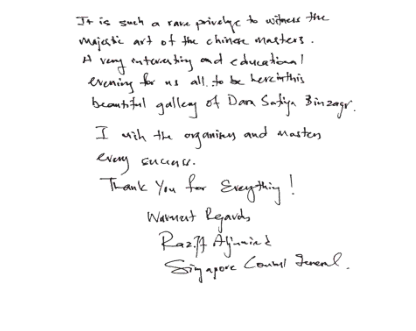 It is such a rare privelge to witness the
majestic art of the chinese masters.
A very interesting and educational
evening for us all. to be here in this
beautiful gallery of Dara Safiya Binzagr.
I wish the organisers and masters
every success.
Thank You for Everything!
Warmest Regards
Razif Aljunied
Singapore Consul General.